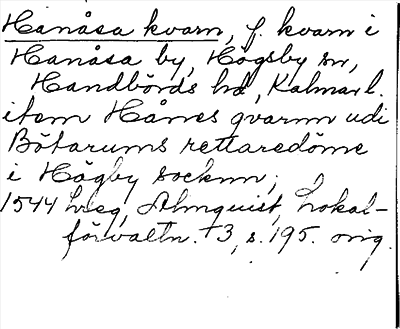 Hanåsa kvarn, f. kvarn i
Hanåsa by, Högsby sn,
Handbörds hd, Kalmar l.
item Hånes qvarnn udi
Bötarums rettaredöme
i Högby socknn;
1544 Almquist, Lokal-
förvaltn. 3, s. 195. orig.